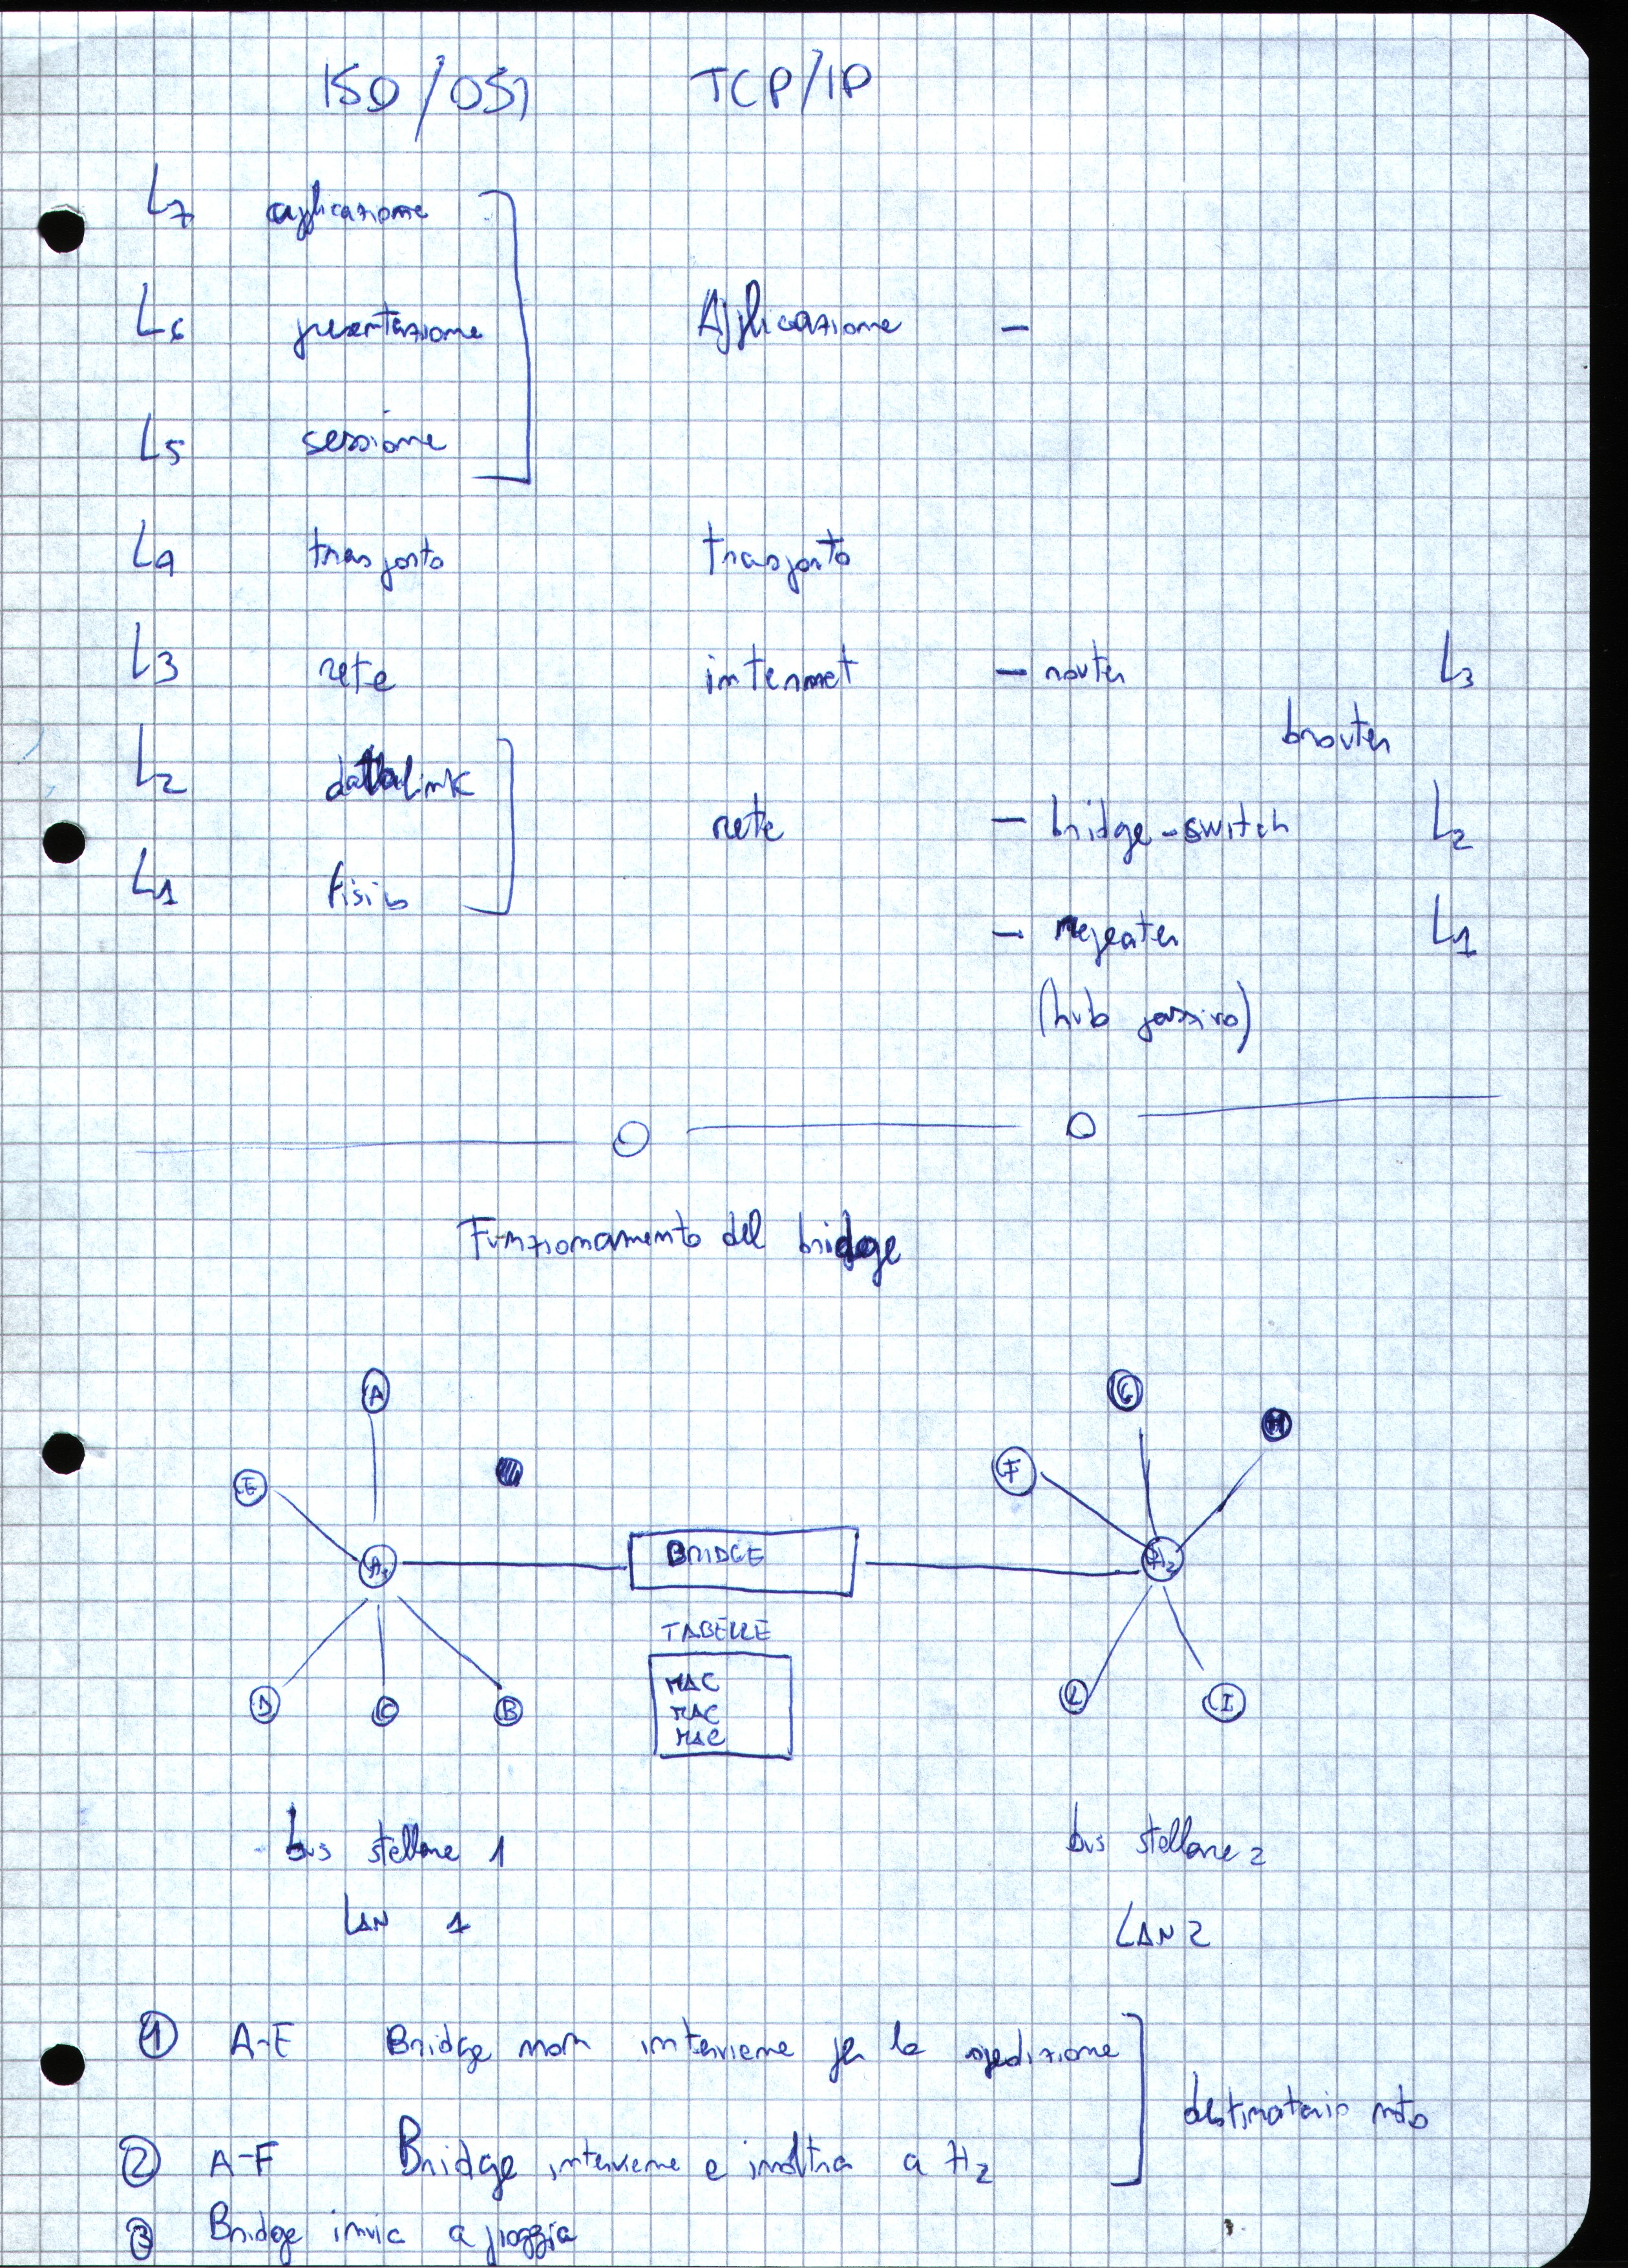 ISO/OSI TCP/IP
L7 applicazione
L6 presentazione Applicazione -
L5 sessione
L4 trasporto trasporto
L3 rete internet - router L3
brouter
L2 datalink
rete - bridge-switch L2
L1 fisico
- repeater L1
(hub passivo)
Funzionamento del bridge
A G
H
E F
BRIDGE H2
TABELLE
MAC
MAC
MAC
D C B L I
bus stellare 1 bus stellare 2
LAN 1 LAN 2
1 A-E Bridge non interviene per la spedizione
destinatario noto
2 A-F Bridge interviene e inoltra a H2
3 Bridge invia a pioggia